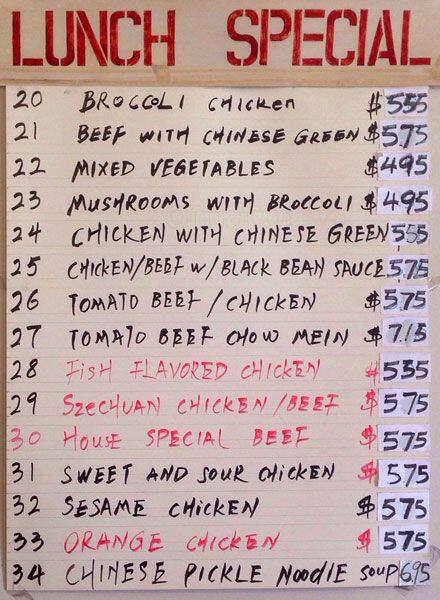 LUNCH SPECIAL
20 BROCCOLI CHICKEN $ 555
21 BEEF WITH CHINESE GREEN $ 575
22 MIXED VEGETABLES $ 495
23 MUSHROOMS WITH BROCCOLI $ 495
24 CHICKEN WITH CHINESE GREEN 555
25 CHICKEN/BEEF W/BLACK BEAN SAUCE 575
26 TOMATO BEEF / CHICKEN $ 575
27 TOMATO BEEF CHOW MEIN $ 715
28 FISH FLAVORED CHICKEN $ 555
29 SZECHUAN CHICKEN/BEEF $ 575
30 HOUSE SPECIAL BEEF $ 575
31 SWEET AND SOUR CHICKEN $ 575
32 SESAME CHICKEN $ 575
33 ORANGE CHICKEN $ 575
34 CHINESE PICKLE NOODLE SOUP 695